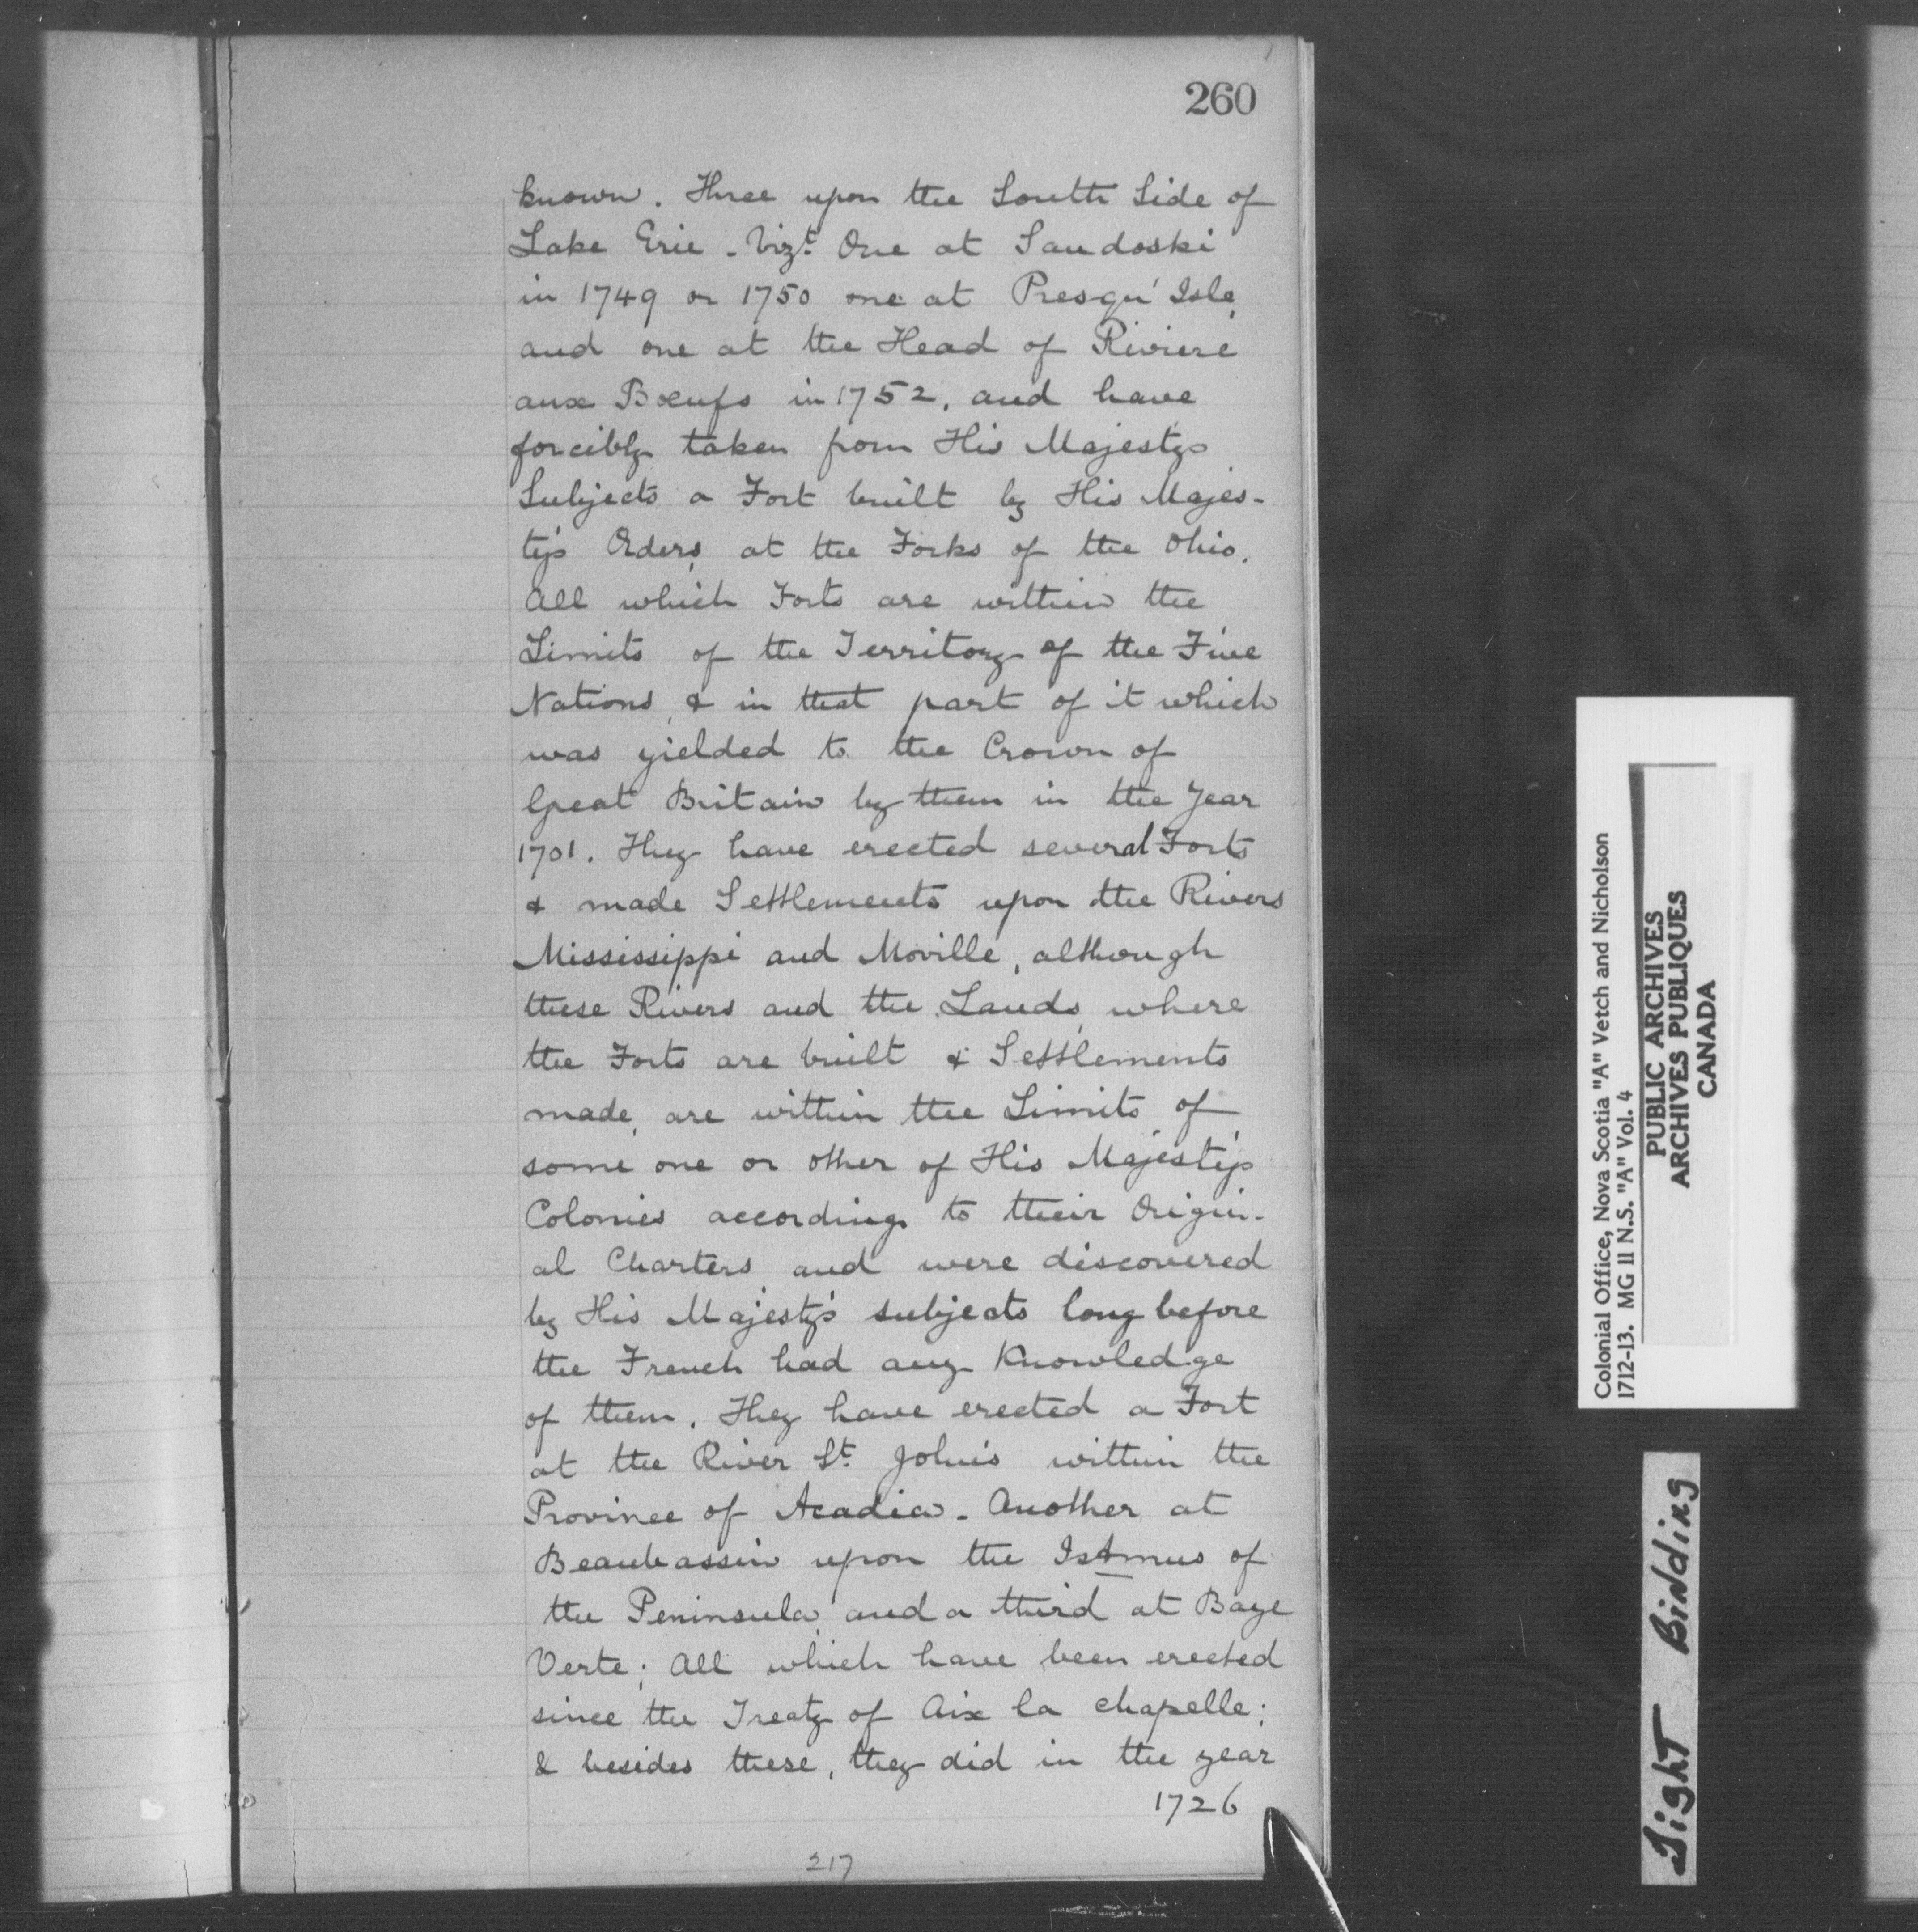 260
known. Three upon the South Side of
Lake Erie - Vizt. One at Sandoski
in 1749 or 1750 one at Presqu' Isle,
and one at the Head of Riviere
aux Bœufs in 1752, and have
forcibly taken from His Majestys
Subjects a Fort built by His Majes-
ty's Orders, at the Forks of the Ohio.
All which Forts are within the
Limits of the Territory of the Five
Nations, & in that part of it which
was yielded to the Crown of
Great Britain by them in the Year
1701. They have erected several Forts
& made Settlements upon the Rivers
Mississippi and Moville, although
these Rivers and the Lands, where
the Forts are built & Settlements
made, are within the Limits of
some one or other of His Majesty's
Colonies according to their Origin-
al Charters, and were discovered
by His Majesty's subjects long before
the French had any Knowledge
of them. They have erected a Fort
at the River St. John's within the
Province of Acadia - Another at
Beaubassin upon the Istmus of
the Peninsula, and a third at Baye
Verte; All which have been erected
since the Treaty of Aix la chapelle;
& besides these, they did in the year
1726
217
Colonial Office, Nova Scotia "A" Vetch and Nicholson
1712-13. MG 11 N.S. "A" Vol. 4
PUBLIC ARCHIVES
ARCHIVES PUBLIQUES
CANADA
Tight Binding